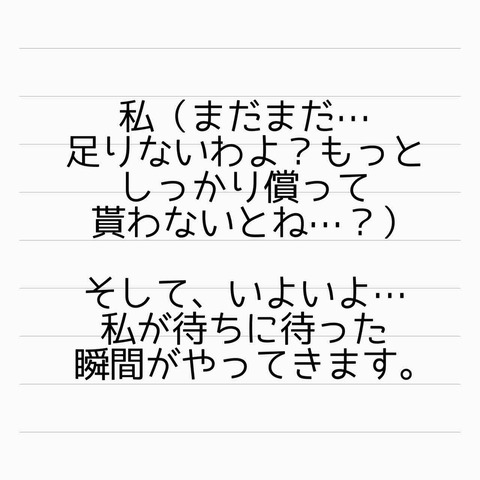 私（まだまだ…
足りないわよ？もっと
しっかり償って
貰わないとね…？）
そして、いよいよ…
私が待ちに待った
瞬間がやってきます。